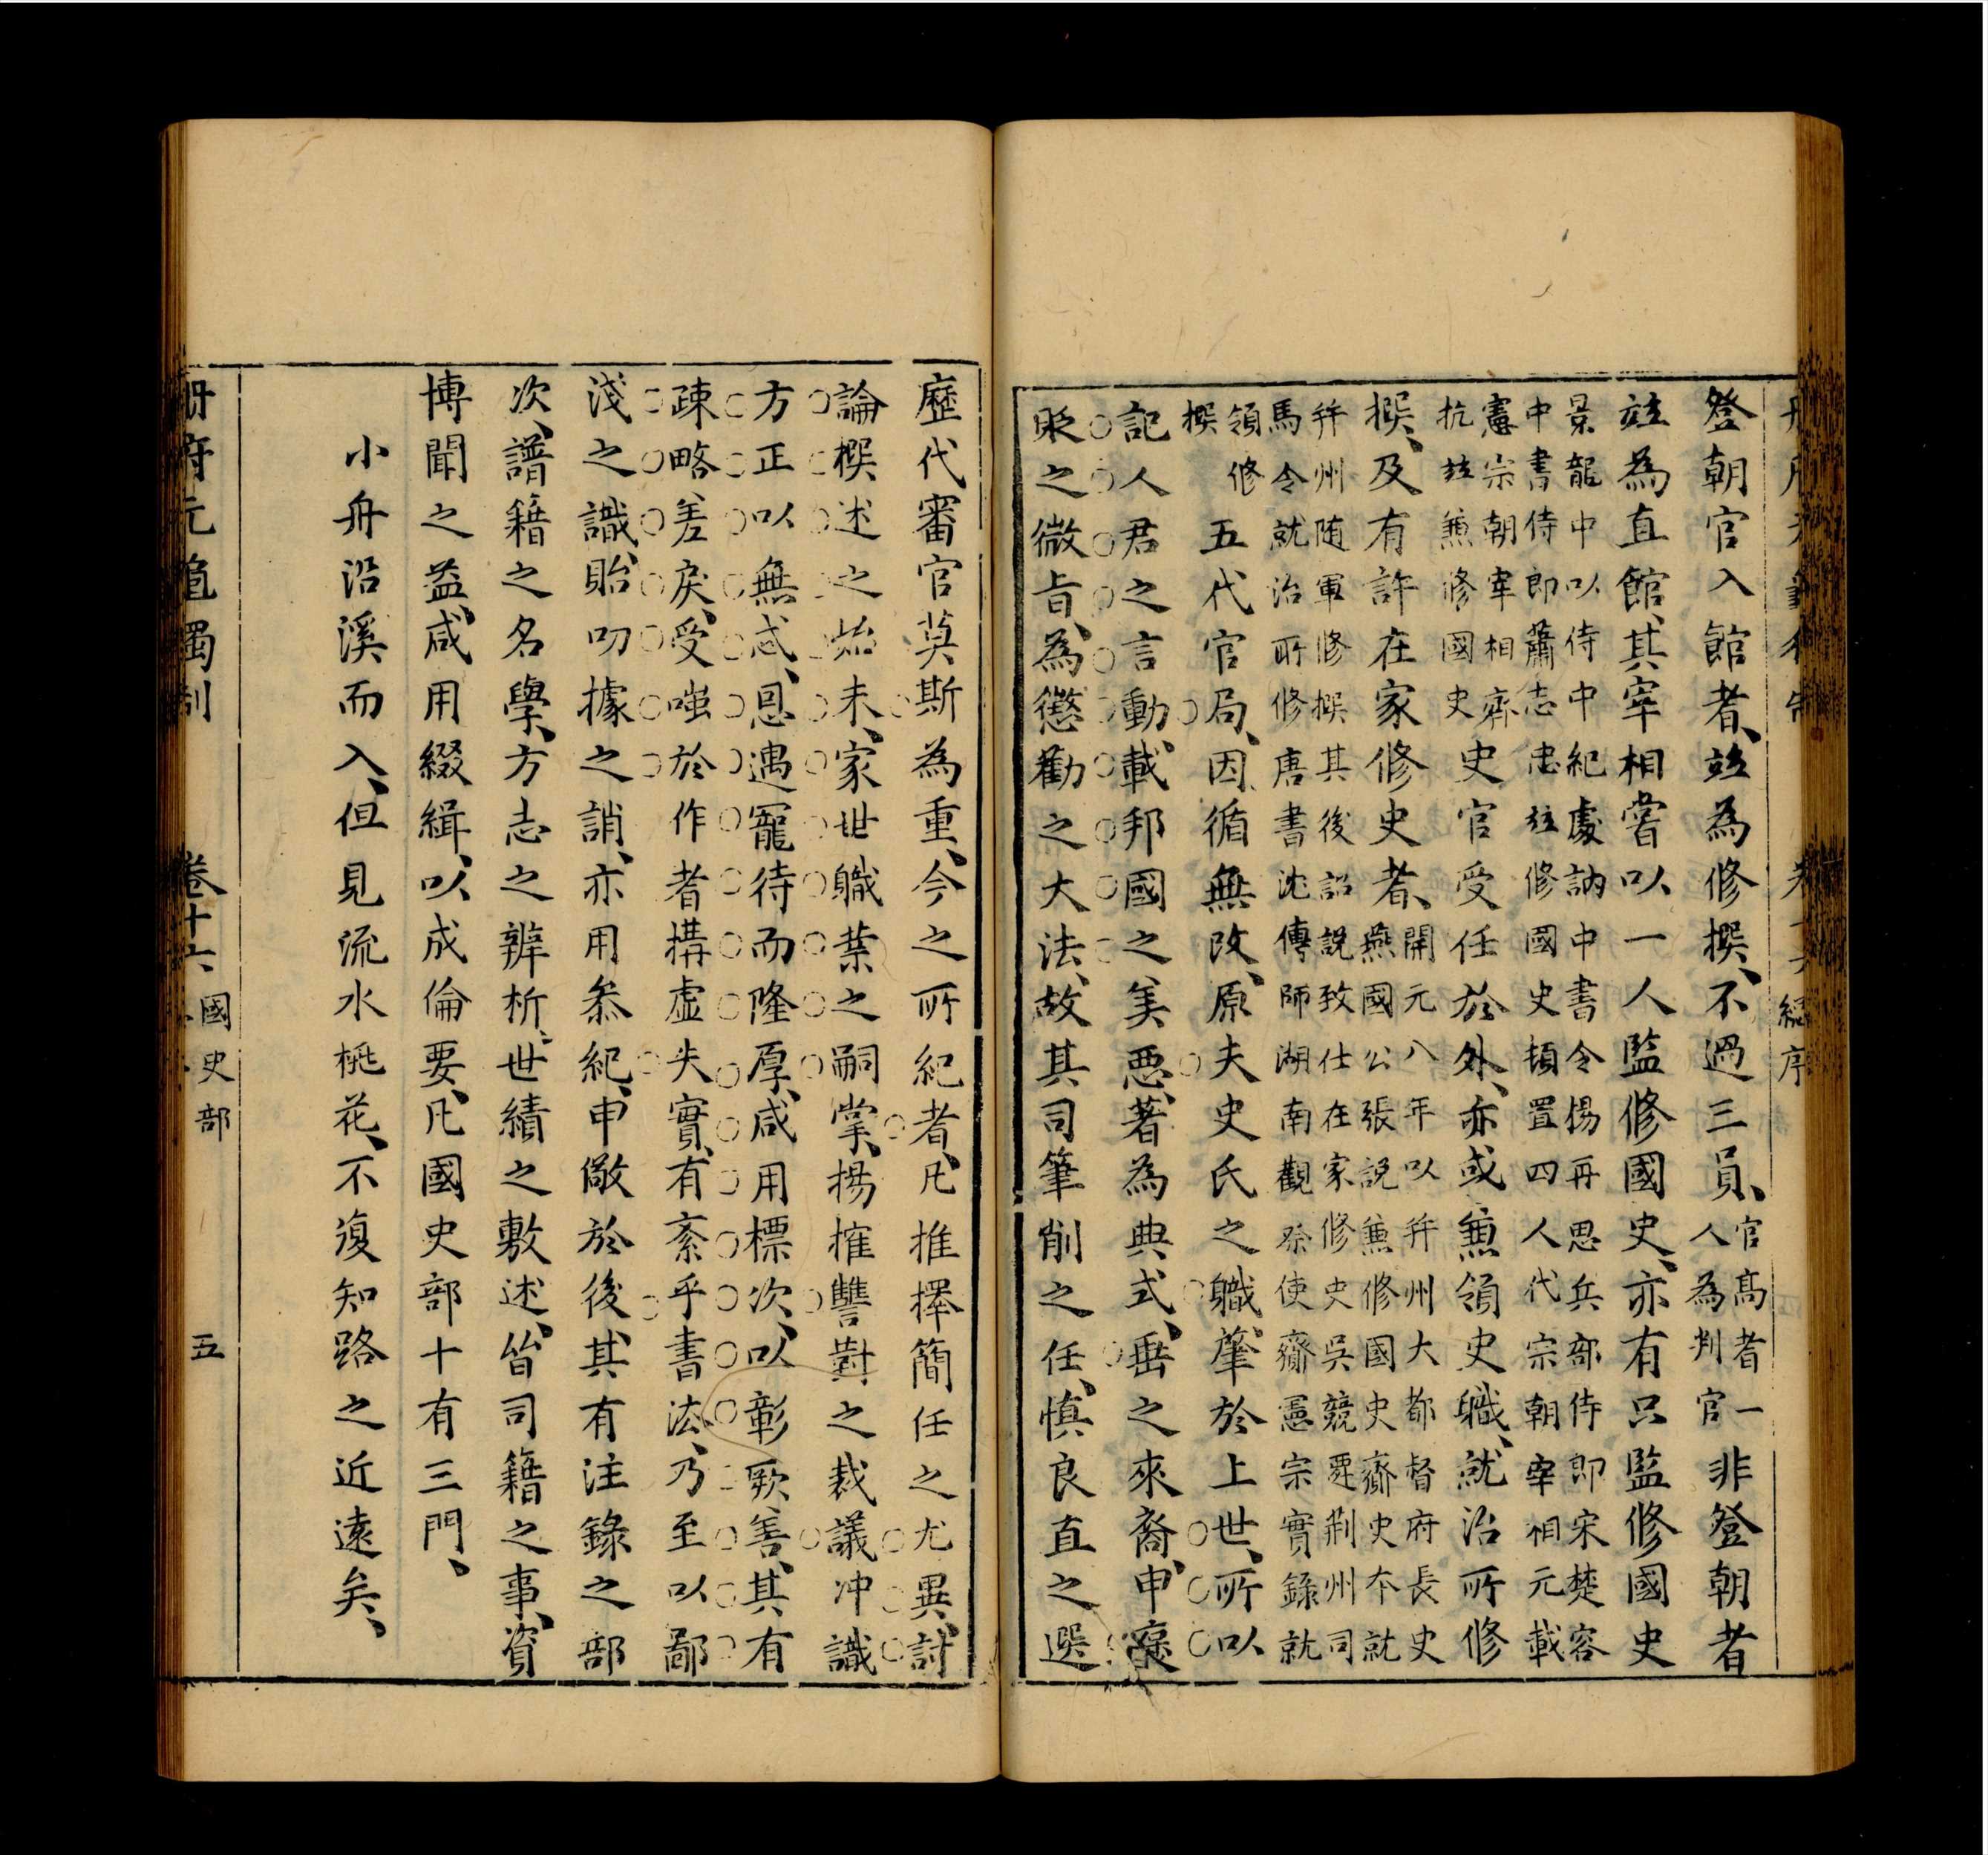 登朝官入館者、竝為修撰、不過三員、官髙者一人為判官非登朝者
竝為直館、其宰相嘗以一人監修國史、亦有只監修國史
景龍中以侍中紀處訥中書令楊再思兵部侍郎宋楚容
中書侍郎蕭志忠竝修國史頓置四人代宗朝宰相元載
憲宗朝宰相齊抗竝兼修國史史官受任於外、亦或兼領史職、就治所修
撰、及有許在家修史者、開元八年以并州大都督府長史燕國公張說兼修國史齎史本就
并州随軍修撰其後詔說致仕在家修史吳競遷荆州司
馬令就治所修唐書沈傳師湖南觀察使齎憲宗實錄就
領修撰五代官局、因循無改、原夫史氏之職、肇於上世、所以
記人君之言動、載邦國之美惡、著為典式、垂之來裔、申褒
貶之微旨、為懲勸之大法、故其司筆削之任、慎良直之選
歷代審官莫斯為重、今之所紀者、凡推擇簡任之尤異、討
論撰述之始末、家世職業之嗣掌、揚搉讐對之裁議冲識
方正以無忒、恩遇寵待而隆厚、咸用標次、以彰厥善、其有
疎略差戾、受嗤於作者、構虛失實、有紊乎書法、乃至以鄙
淺之識、貽叨據之誚、亦用叅紀、申儆於後、其有注錄之部
次、譜籍之名學、方志之辨析、世績之敷述、皆司籍之事、資
博聞之益、咸用綴緝、以成倫要、凡國史部十有三門、
小舟沿溪而入、但見流水桃花、不復知路之近遠矣、
冊府元龜獨制 卷十六 國史部 五